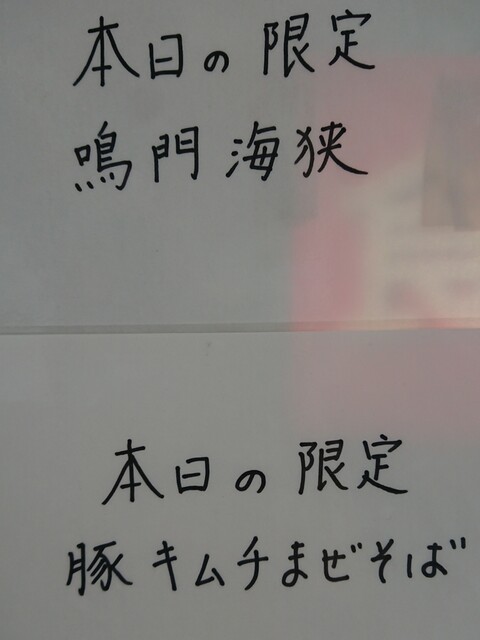 本日の限定
鳴門海狭
本日の限定
豚キムチまぜそば